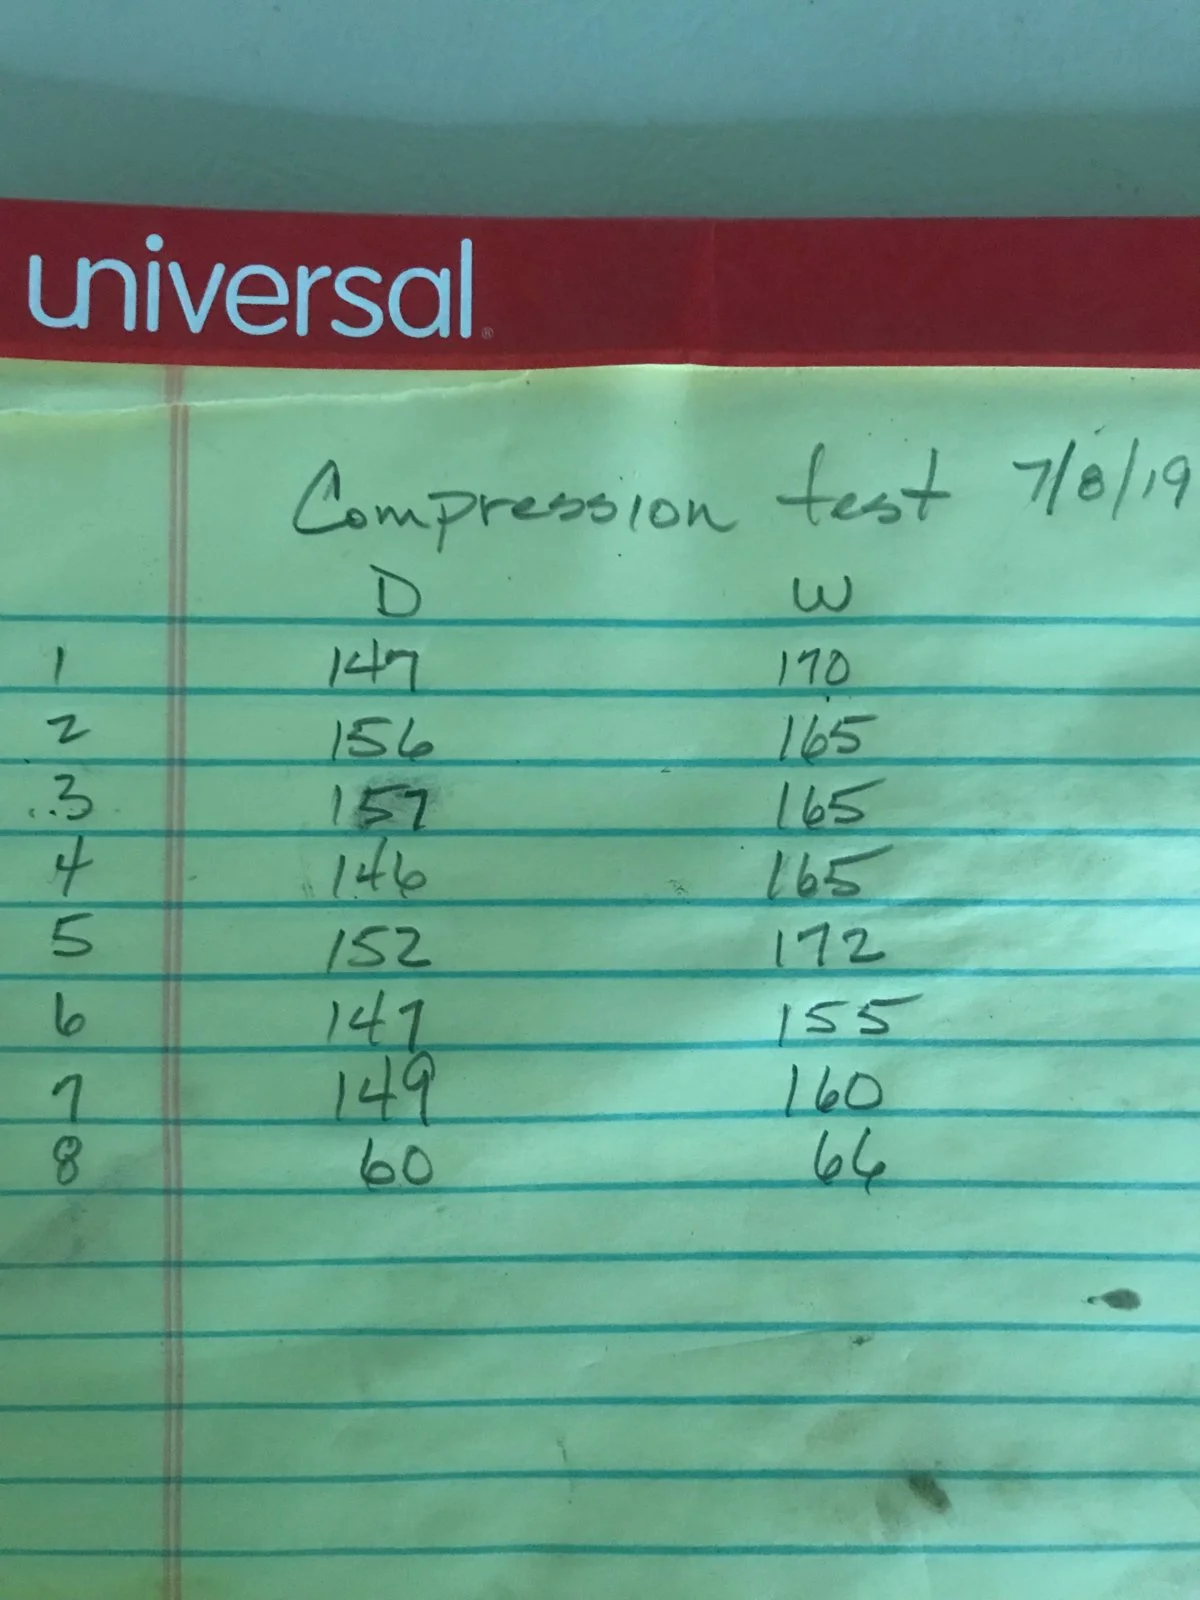 universal®
Compression test 7/8/19
D W
1 147 170
2 156 165
3 157 165
4 146 165
5 152 172
6 147 155
7 149 160
8 60 66